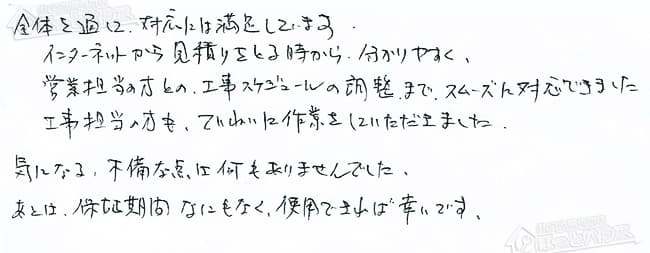 全体を通して、対応には満足しています。
インターネットから見積りをとる時から、分かりやすく、
営業担当の方との、工事スケジュールの調整まで、スムーズに対応できました
工事担当の方も、ていねいに作業をしていただきました。
気になる、不備な点は何もありませんでした。
あとは、保証期間なにもなく、使用できれば幸いです。